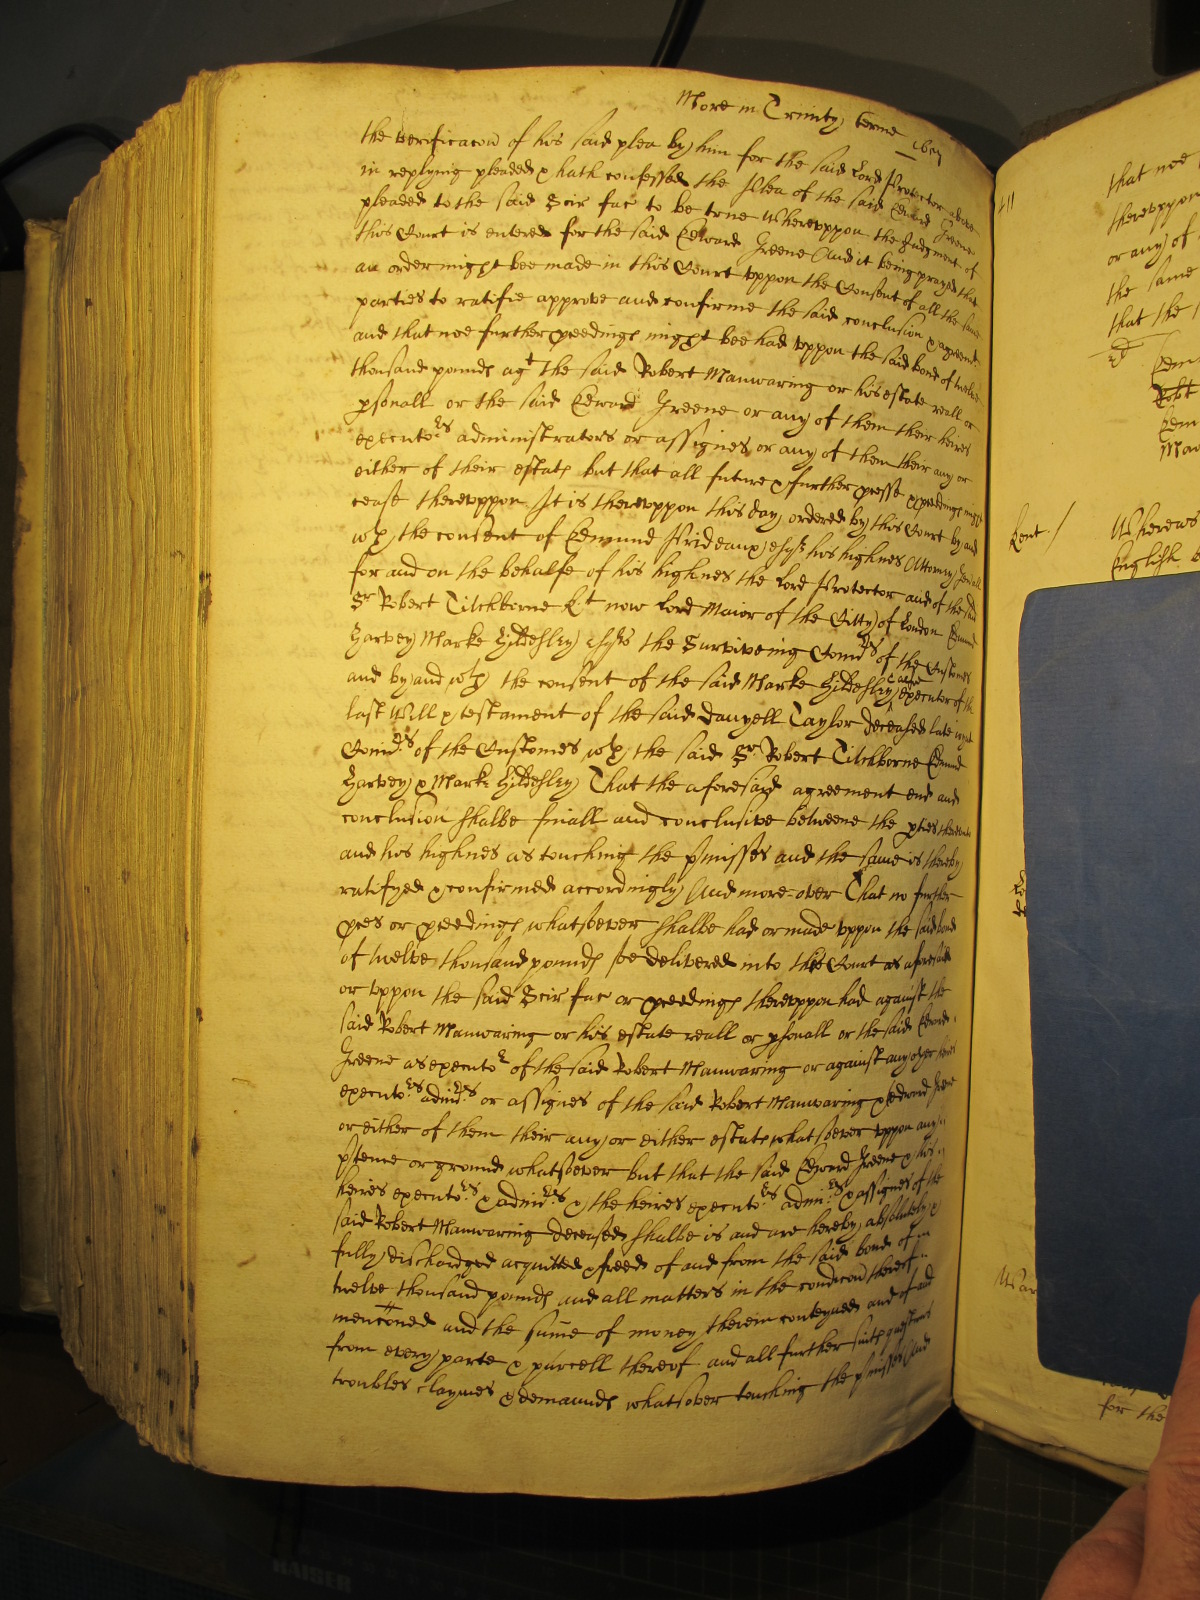 More in Trinity terme 1657
the verificacon of his said plea by him for the said Lord Protector above
in replying pleaded & hath confessed the Plea of the said Edward Greene
pleaded to the said Scir fac to be true Whereuppon the Judgment of
this Court is entered for the said Edward Greene And it being prayed that
an order might bee made in this Court uppon the Consent of all the said
parties to ratifie approve and confirme the said conclusion & agreemt
and that noe further pceedings might bee had uppon the said bond of twelve
thousand pounds agt the said Robert Manwaring or his estate reall or
psonall or the said Edward Greene or any of them their heires
executors administrators or assignes or any of them their any or
either of their estats but that all future & further pcesse & pceedings might
cease thereuppon It is thereuppon this day ordered by this Court by and
wth the consent of Edmund Prideaux esqr his highnes Attorny Genall
for and on the behalfe of his highnes the Lord Protector and of the said
Sr Robert Titchborne Kt now Lord Maior of the Citty of London Edmund
Harvey Marke Hildesley esqrs the Surviveing Comrs of the Customes
and by and wth the consent of the said Marke Hildesley executor of the
last Will & testament of the said Danyell Taylor deceased late
Comrs of the Customes wth the said Sr Robert Titchborne Edmund
Harvey & Marke Hildesley That the aforesaid agreement end and
conclusion shalbe finall and conclusive betweene the pties thereunto
and his highnes as touching the pmisses and the same is thereby
ratifyed & confirmed accordingly And more-over That no further
pces or pceedings whatsoever shalbe had or made uppon the said bond
of twelve thousand pounds soe delivered into this Court as aforesaid
or uppon the said Scir fac or pceedings thereuppon had against the
said Robert Manwaring or his estate reall or psonall or the said Edward
Greene as executor of the said Robert Manwaring or against any other heires
executors admrs or assignes of the said Robert Manwaring & Edward Greene
or either of them their any or either estats whatsoever uppon any
ptence or ground whatsoever but that the said Edward Greene & his
heires executors & admrs & the heires executors admrs & assignes of the
said Robert Manwaring deceased shalbe is and are hereby absolutely &
fully dischardged acquitted & freed of and from the said bond of
twelve thousand pounds and all matters in the condicon thereof
mencioned and the sume of money therein conteyned and of and
from every parte & parcell thereof and all further suits
troubles claymes & demaunds whatsoever touching the pmisses And
411
that noe
thereuppon
or any of
the same
that the
Edm
Robt
Edm
Mar
Kent /
Whereas
English
for the
KAISER